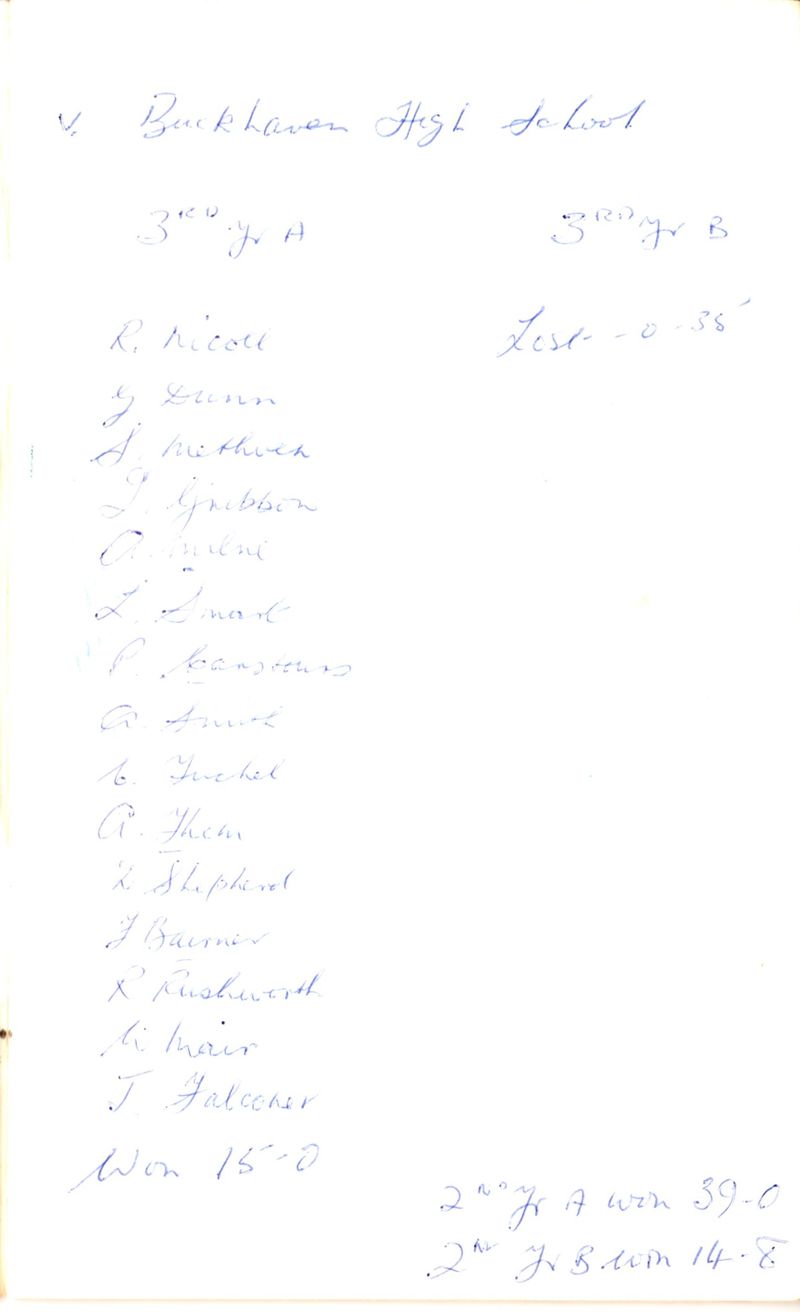 v. Buckhaven High School
3RD Yr A
3RD Yr B
R. Nicoll
Lost - 0 - 35
G Dunn
S. Methven
J. Gribbon
A. Milne
L. Smart
P.
A. Smith
C.
A. Thom
L Shepherd
J Bairner
R Rushworth
Mair
J. Falconer
Won 15-0
2ND Yr A won 39-0
2ND Yr B won 14-8